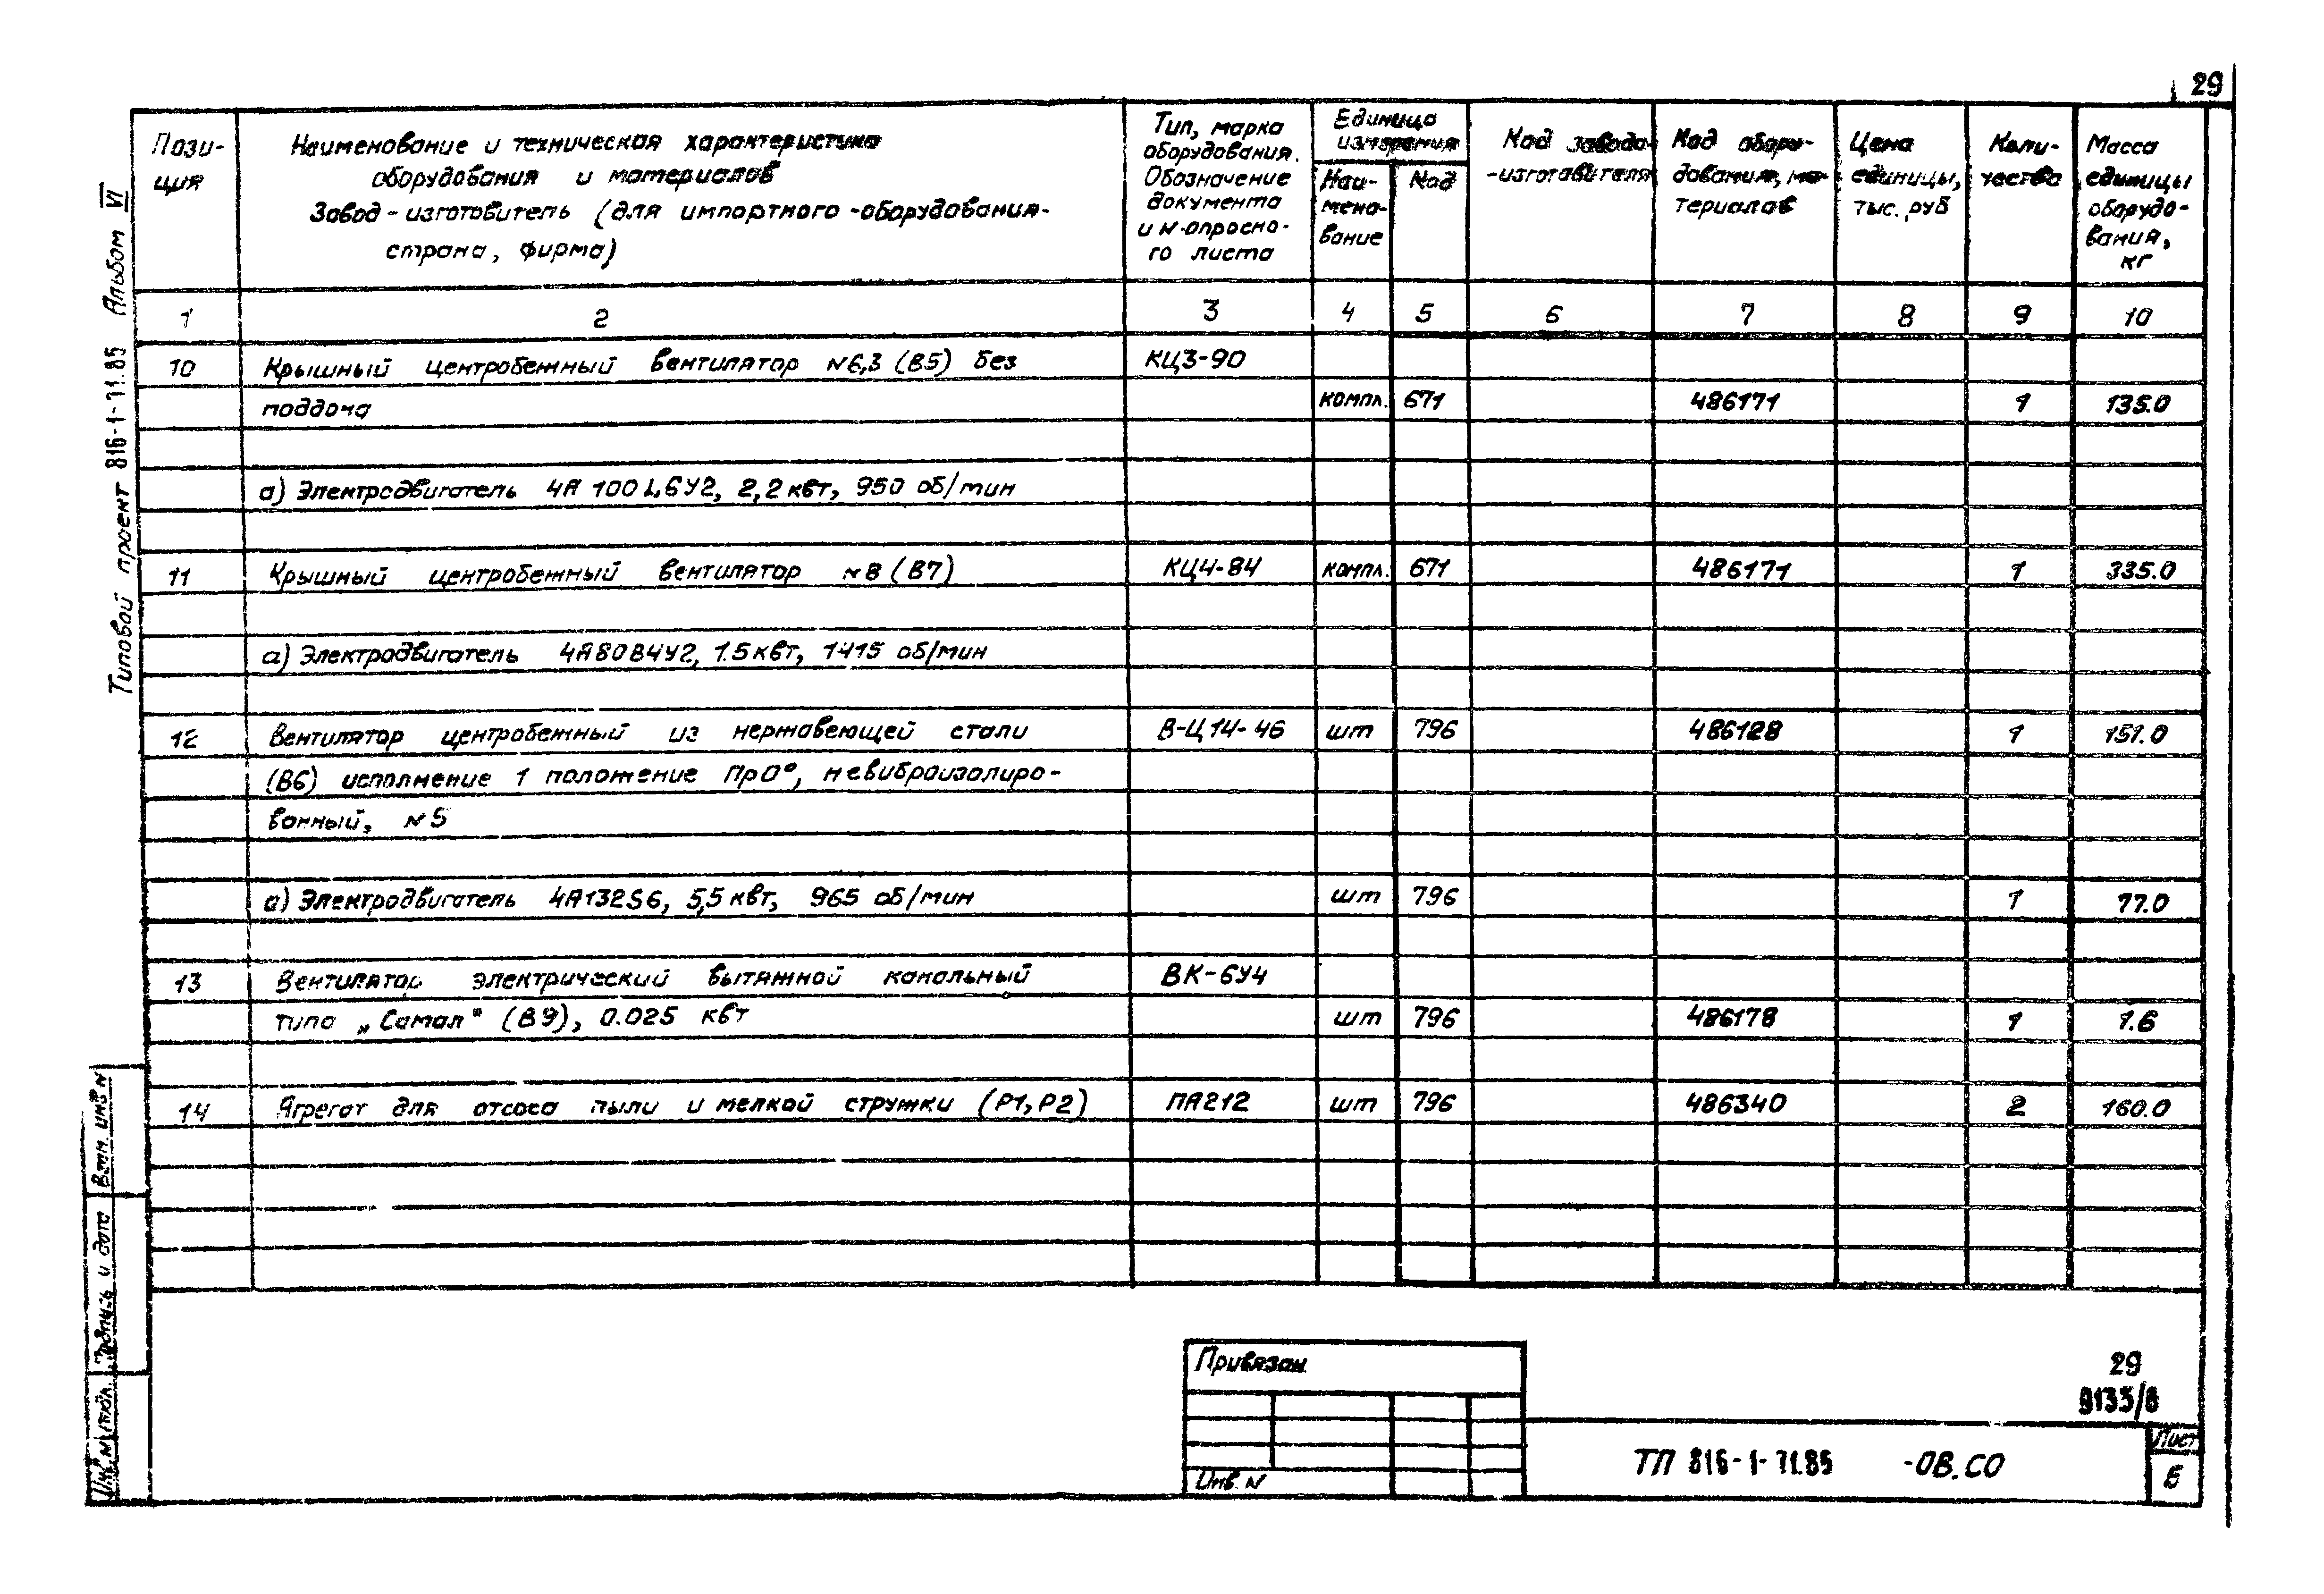 29
Типовой проект 816-1-71.85 Альбом VI
Пози-
ция
Наименование и техническая характеристика
оборудования и материалов
Завод-изготовитель (для импортного оборудования-
страна, фирма)
Тип, марка
оборудования.
Обозначение
документа
и N опросно-
го листа
Единица
измерения
Наи-
мено-
вание
Код
Код завода-
-изготовителя
Код обору-
дования, ма-
териалов
Цена
единицы,
тыс. руб
Коли-
чество
Масса
единицы
оборудо-
вания,
кг
1 2 3 4 5 6 7 8 9 10
10 Крышный центробежный вентилятор N6,3 (В5) без КЦ3-90
поддона компл. 671 486171 1 135.0
а) Электродвигатель 4А 100L6У2, 2,2 квт, 950 об/мин
11 Крышный центробежный вентилятор N8 (В7) КЦ4-84 компл. 671 486171 1 335.0
а) Электродвигатель 4А80В4У2, 1.5 квт, 1415 об/мин
12 Вентилятор центробежный из нержавеющей стали В-Ц14-46 шт 796 486128 1 151.0
(В6) исполнение 1 положение Пр0°, невиброизолиро-
ванный, N5
а) Электродвигатель 4А132S6, 5,5 квт, 965 об/мин шт 796 1 77.0
13 Вентилятор электрический вытяжной канальный ВК-6У4
типа „Самал" (В9), 0.025 квт шт 796 486178 1 1.6
14 Агрегат для отсоса пыли и мелкой стружки (Р1, Р2) ПА212 шт 796 486340 2 160.0
Взам. инв N
Подпись и дата
Инв. N подл.
Привязан
Инв. N
29
9133/6
ТП 816-1-71.85 -ОВ.СО
Лист
5